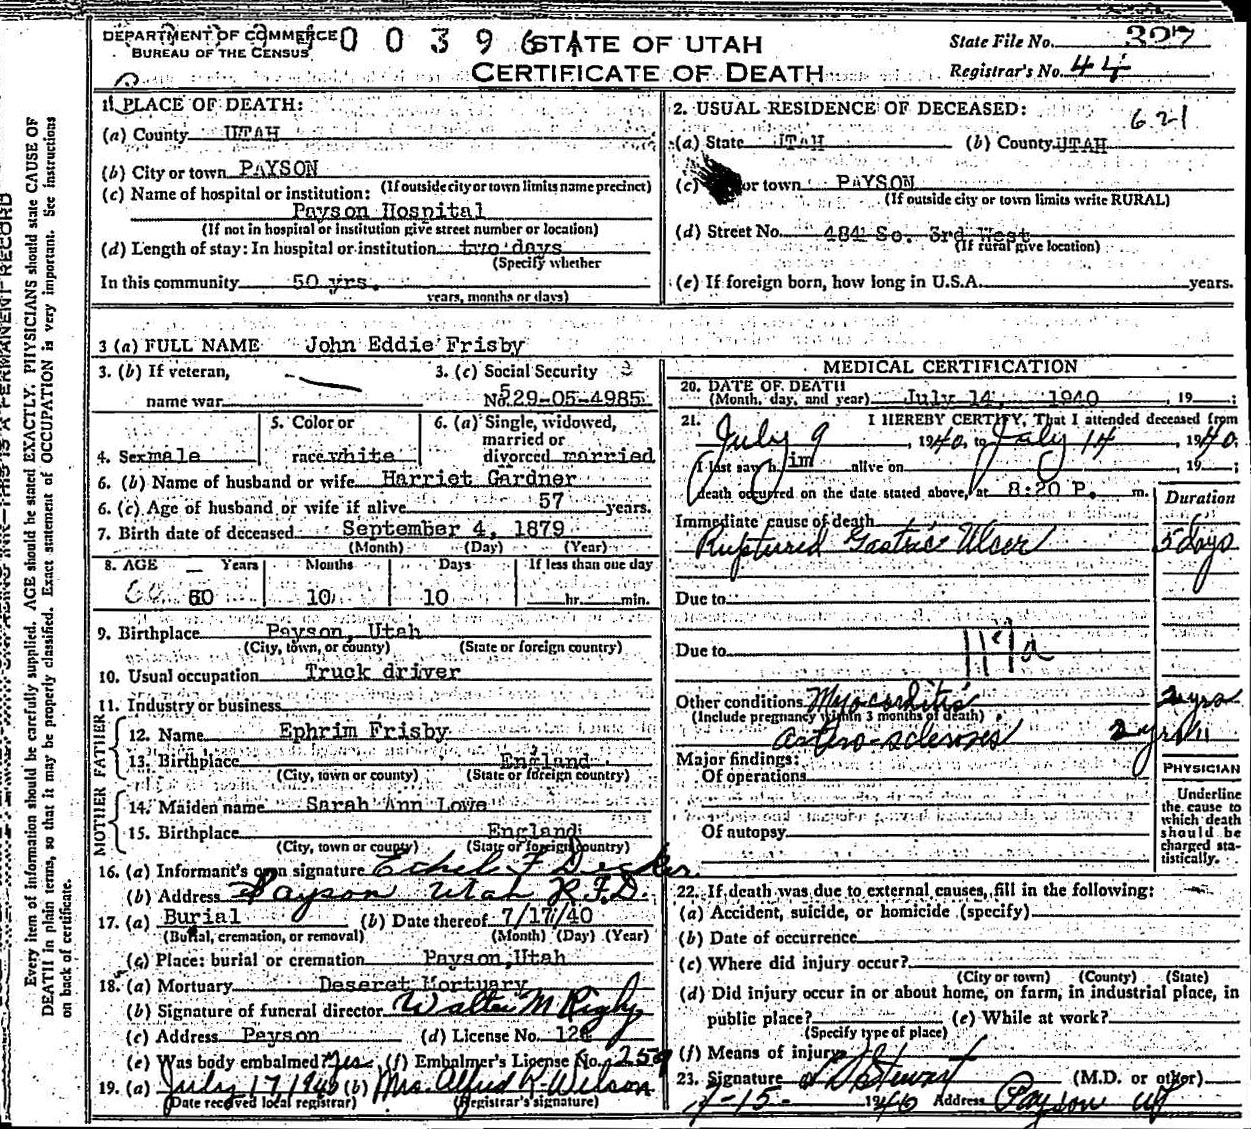 DEPARTMENT OF COMMERCE
BUREAU OF THE CENSUS
0 0 3 9 6
STATE OF UTAH
CERTIFICATE OF DEATH
State File No. 397
Registrar's No. 44
1. PLACE OF DEATH:
(a) County UTAH
(b) City or town PAYSON
(If outside city or town limits name precinct)
(c) Name of hospital or institution:
Payson Hospital
(If not in hospital or institution give street number or location)
(d) Length of stay: In hospital or institution two days
(Specify whether
In this community 50 yrs.
years, months or days)
2. USUAL RESIDENCE OF DECEASED:
621
(a) State UTAH (b) County UTAH
(c) or town PAYSON
(If outside city or town limits write RURAL)
(d) Street No. 484 So. 3rd West
(If rural give location)
(e) If foreign born, how long in U.S.A. years.
3 (a) FULL NAME John Eddie Frisby
3. (b) If veteran,
name war
3. (c) Social Security
No. 529-05-4985
4. Sex male
5. Color or
race white
6. (a) Single, widowed,
married or
divorced married
6. (b) Name of husband or wife Harriet Gardner
6. (c) Age of husband or wife if alive 57 years.
7. Birth date of deceased September 4, 1879
(Month) (Day) (Year)
8. AGE Years Months Days If less than one day
60 60 10 10 hr. min.
9. Birthplace Payson, Utah
(City, town, or county) (State or foreign country)
10. Usual occupation Truck driver
11. Industry or business
FATHER
12. Name Ephrim Frisby
13. Birthplace England
(City, town or county) (State or foreign country)
MOTHER
14. Maiden name Sarah Ann Lowe
15. Birthplace England
(City, town or county) (State or foreign country)
16. (a) Informant's own signature Ethel F
(b) Address Payson Utah R.F.D.
17. (a) Burial (b) Date thereof 7/17/40
(Burial, cremation, or removal) (Month) (Day) (Year)
(c) Place: burial or cremation Payson, Utah
18. (a) Mortuary Deseret Mortuary
(b) Signature of funeral director Walter M Rigby
(c) Address Payson (d) License No. 124
(e) Was body embalmed? Yes (f) Embalmer's License No. 259
19. (a) July 17 1940 (b) Mrs. Alfred R. Wilson
(Date received local registrar) (Registrar's signature)
MEDICAL CERTIFICATION
20. DATE OF DEATH
(Month, day, and year) July 14, 1940, 19 ;
21. I HEREBY CERTIFY, That I attended deceased from
July 9, 1940, to July 14, 1940;
I last saw him alive on , 19 ;
death occurred on the date stated above, at 8:20 P. m.
Duration
Immediate cause of death
Ruptured Gastric Ulcer 5 days
Due to
Due to
117a
Other conditions Myocarditis 2 yrs
(Include pregnancy within 3 months of death)
Arterio-sclerosis 2 yrs
Major findings:
Of operations
Of autopsy
PHYSICIAN
Underline
the cause to
which death
should be
charged sta-
tistically.
22. If death was due to external causes, fill in the following:
(a) Accident, suicide, or homicide (specify)
(b) Date of occurrence
(c) Where did injury occur?
(City or town) (County) (State)
(d) Did injury occur in or about home, on farm, in industrial place, in
public place? (e) While at work?
(Specify type of place)
(f) Means of injury
23. Signature Stewart (M.D. or other)
7-15- 1940 Address Payson Ut
Every item of information should be carefully supplied. AGE should be stated EXACTLY. PHYSICIANS should state CAUSE OF
DEATH in plain terms, so that it may be properly classified. Exact statement of OCCUPATION is very important. See instructions
on back of certificate.
THIS IS A PERMANENT RECORD